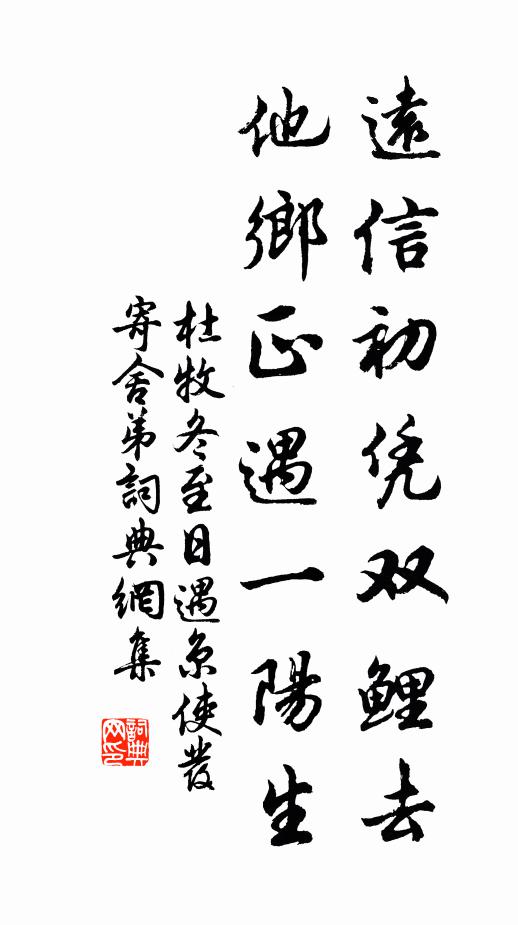 遠信初凭双鲤去
他鄉正遇一陽生
杜牧冬至日遇京使發
寄舍弟詞典網集
詞典
网印